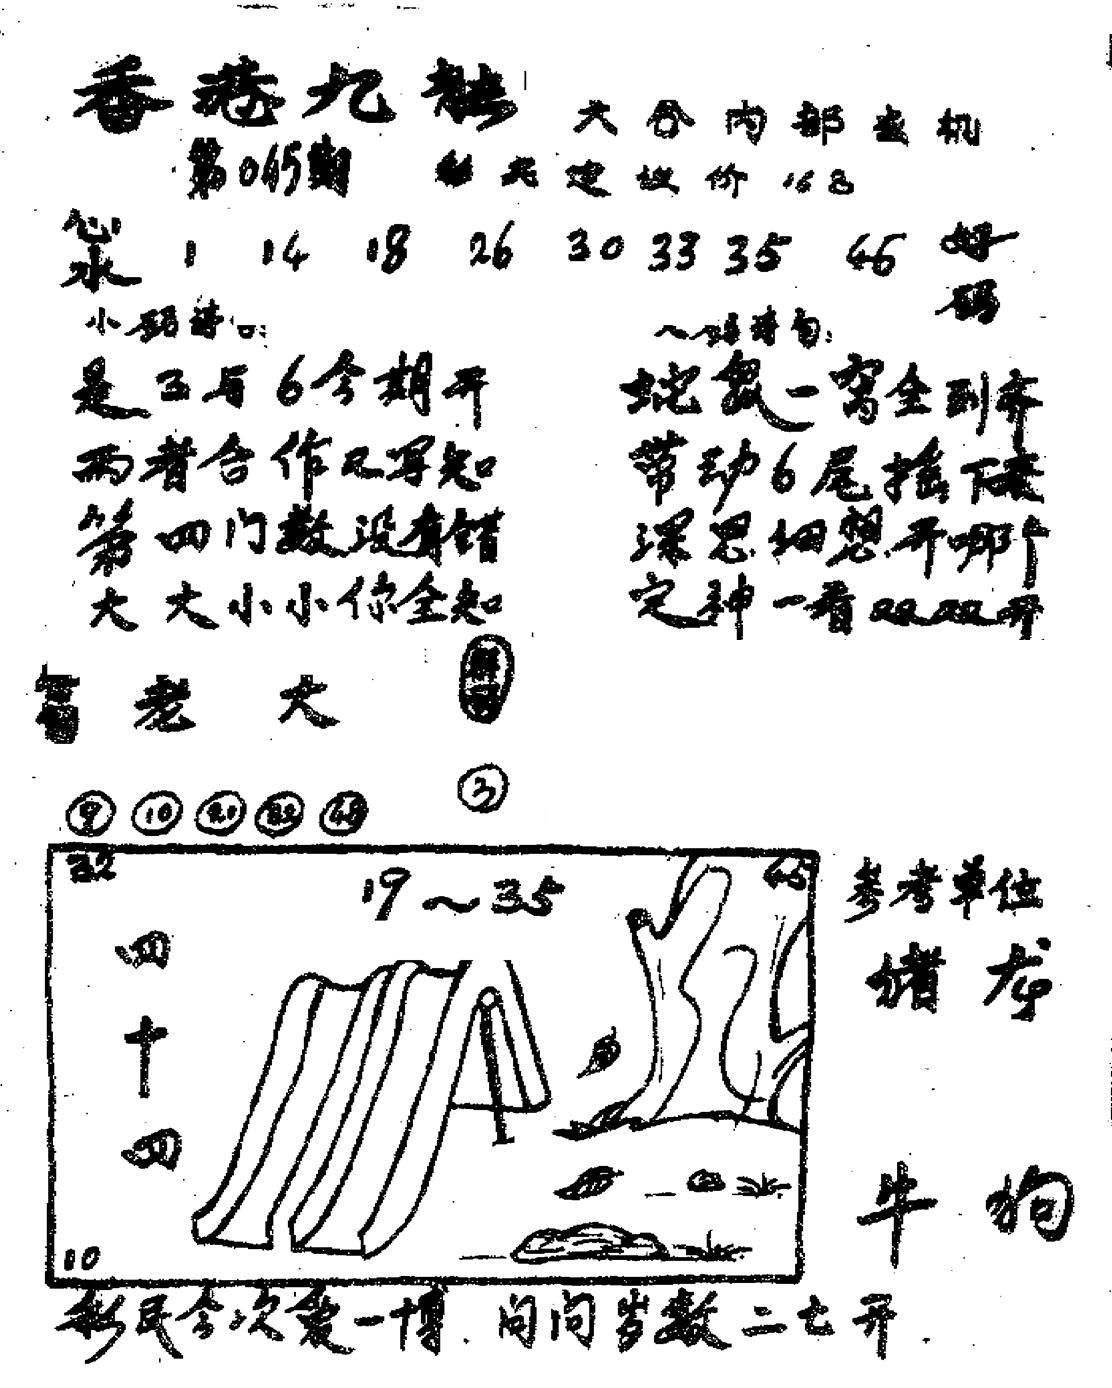 香港九龍
大公内部玄机
第065期
建议价
心水 1 14 18 26 30 33 35 46 好码
小码诗
诗句:
是3与6今期开
蛇鼠一窝全到齐
两者合作己写知
带动6尾摇下来
第四门数没有错
深思细想开哪个
大大小小你全知
定神一看双双开
老大
3
9 10 21 32 48
32 19~35 45
四十四
10
参考单位
猪 龙
牛 狗
彩民今次爱一博 问问岁数二七开